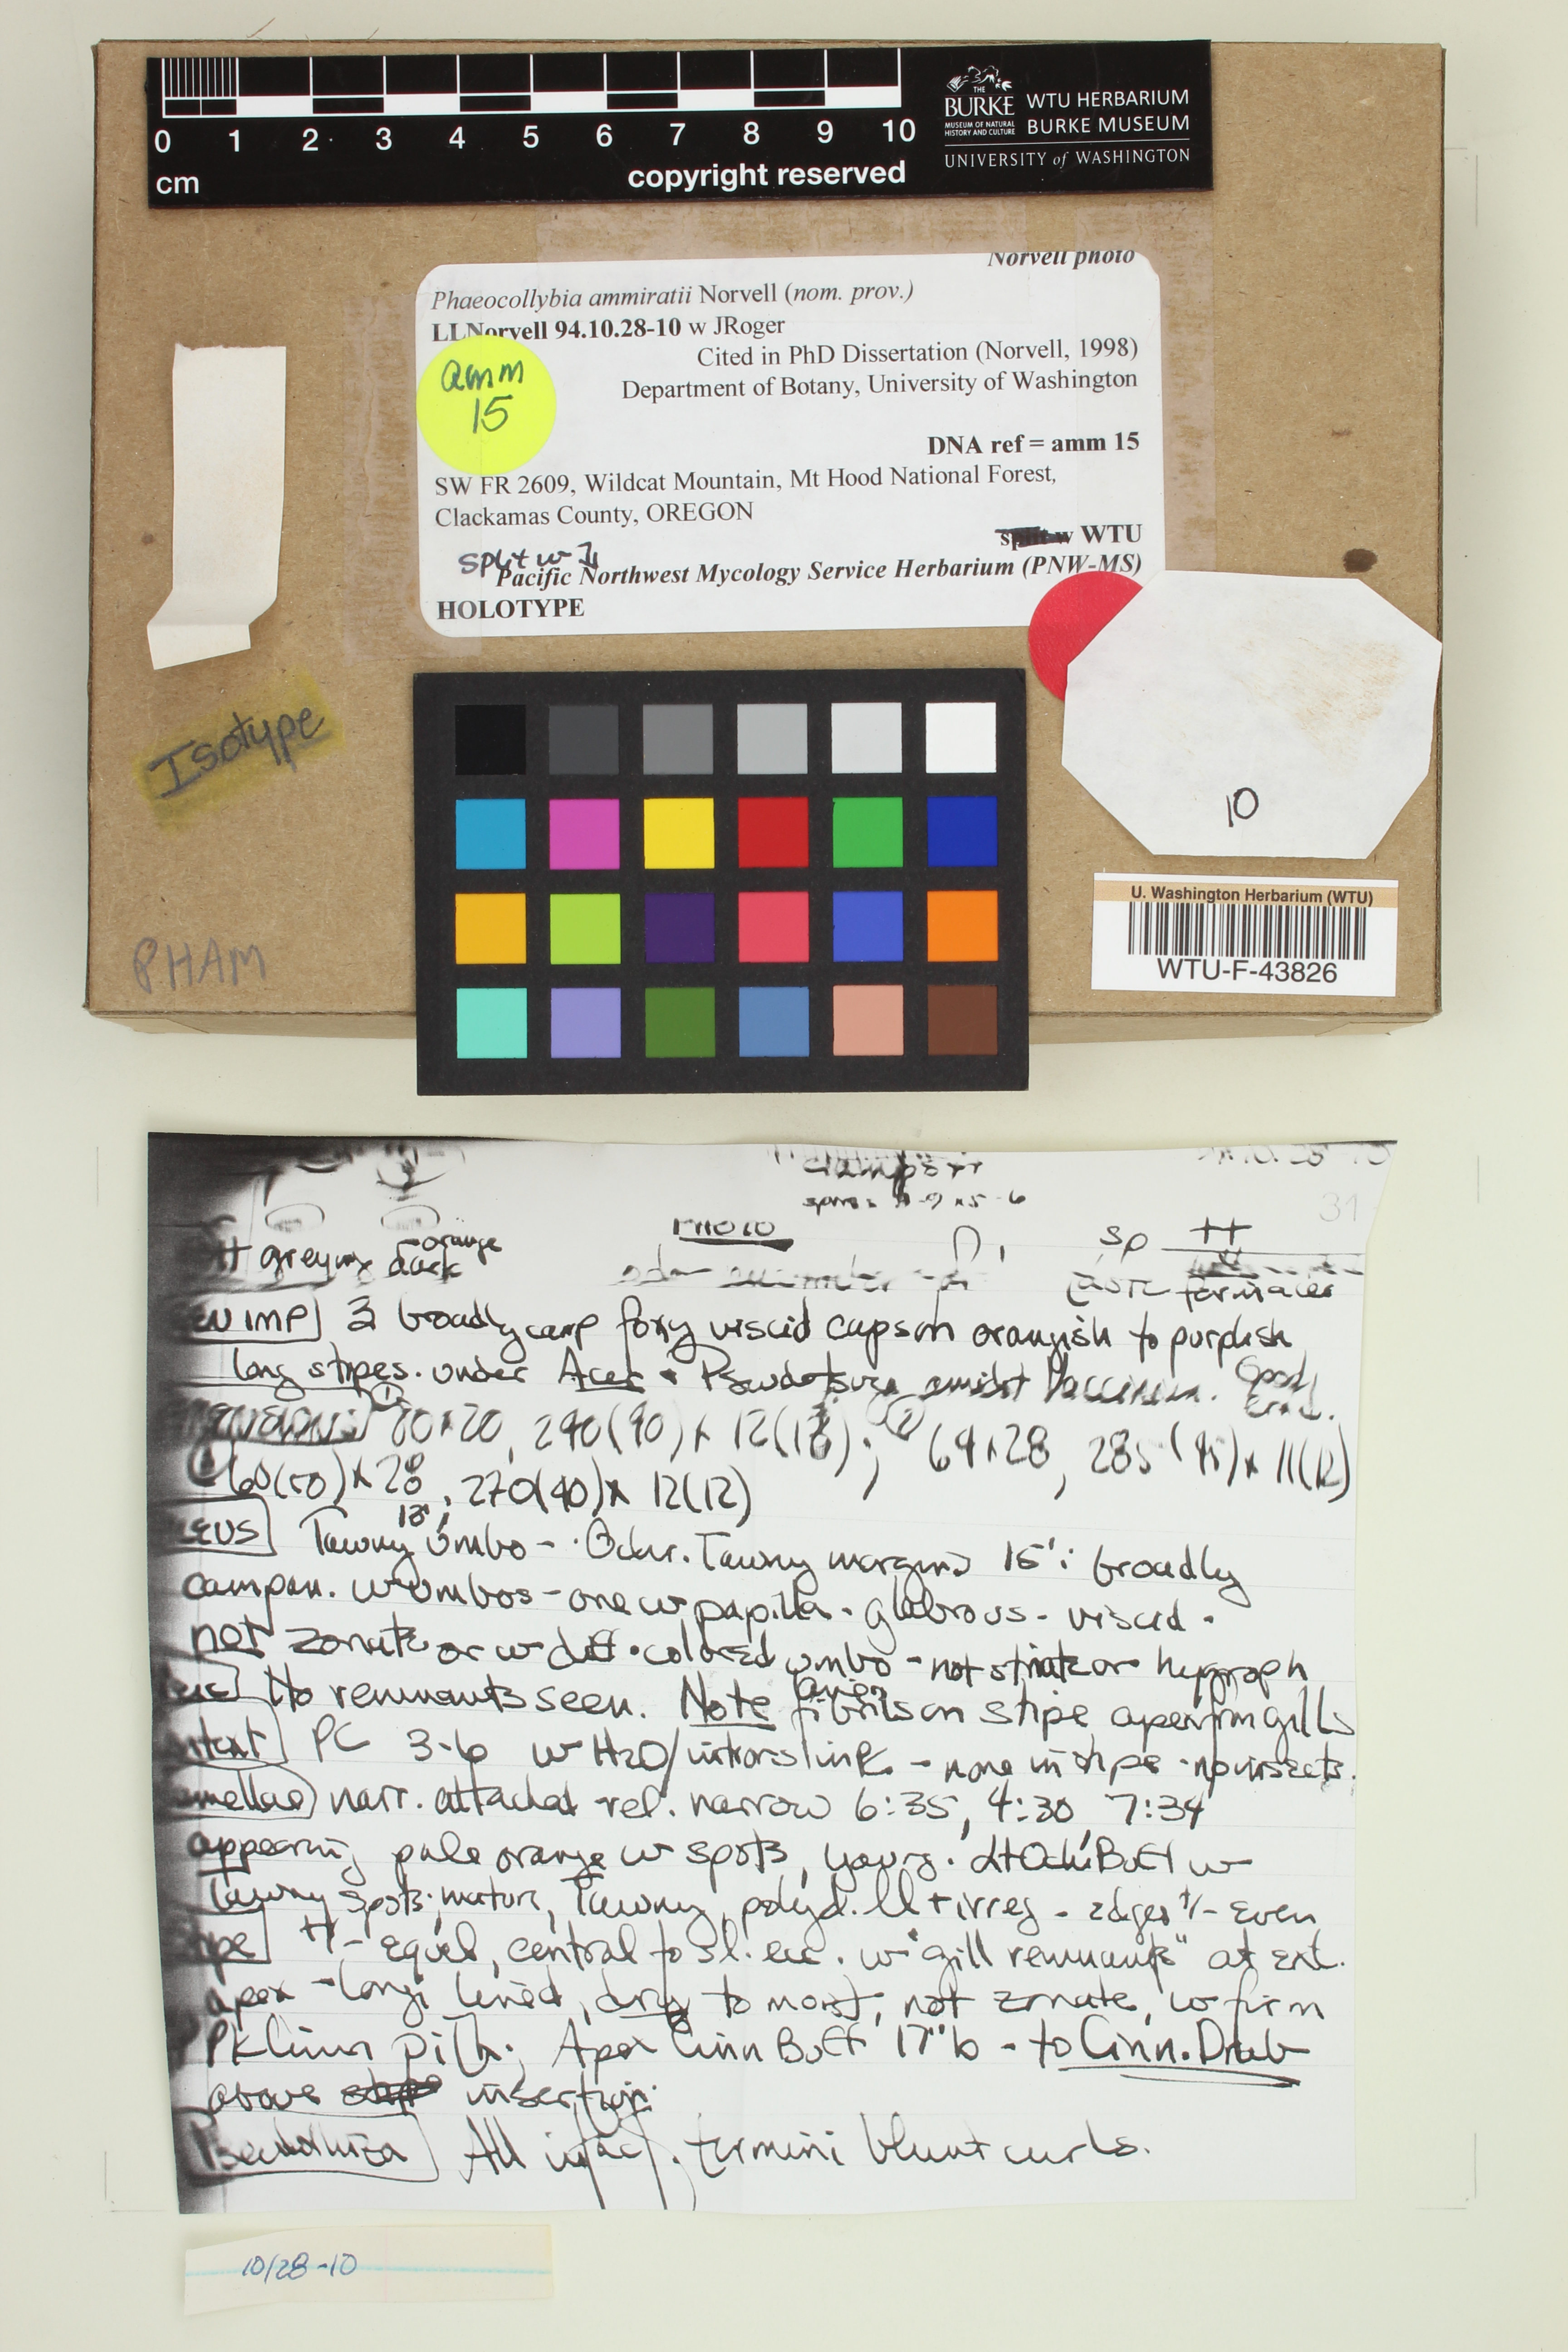 0 1 2 3 4 5 6 7 8 9 10
cm
copyright reserved
THE
BURKE
MUSEUM OF NATURAL
HISTORY AND CULTURE
WTU HERBARIUM
BURKE MUSEUM
UNIVERSITY of WASHINGTON
Norvell photo
Phaeocollybia ammiratii Norvell (nom. prov.)
LLNorvell 94.10.28-10 w JRoger
Cited in PhD Dissertation (Norvell, 1998)
amm
15
Department of Botany, University of Washington
DNA ref = amm 15
SW FR 2609, Wildcat Mountain, Mt Hood National Forest,
Clackamas County, OREGON
split w WTU
split w
Pacific Northwest Mycology Service Herbarium (PNW-MS)
HOLOTYPE
Isotype
10
U. Washington Herbarium (WTU)
WTU-F-43826
PHAM
31
PHOTO
sp ++
greying dark orange
3 broadly camp foxy viscid caps on orangish to purplish
long stipes. under Acer + Pseudotsuga amidst Vaccinium. Good
20, 290(90) x 12(18); ② 64x28, 285 (95) x 11(12)
60(50) x 28, 270(90) x 12(12)
Tawny umbo - Ochr. Tawny margins 15'i broadly
campan. w umbos - one w papilla. glabrous - viscid.
not zonate or w diff. colored umbo - not striate or hygroph
No remnants seen. Note fibrils on stipe apex from gills
PC 3-6 w H2O/ - none in stipe - no insects.
narr. attached rel. narrow 6:35, 4:30, 7:34
appearing pale orange w spots, young. Lt Ochr Buff w
Tawny spots; mature, Tawny, polyd. ll + irreg - edges +/- even
+/- equal, central to sl. ecc. w "gill remnants" at ext.
apex - longi lined, dry to moist, not zonate, w firm
Pk Cinn pith; Apex Cinn Buff 17"b - to Cinn. Drab
above insertion.
Pseudorhiza All intact. termini blunt curls.
10/28-10